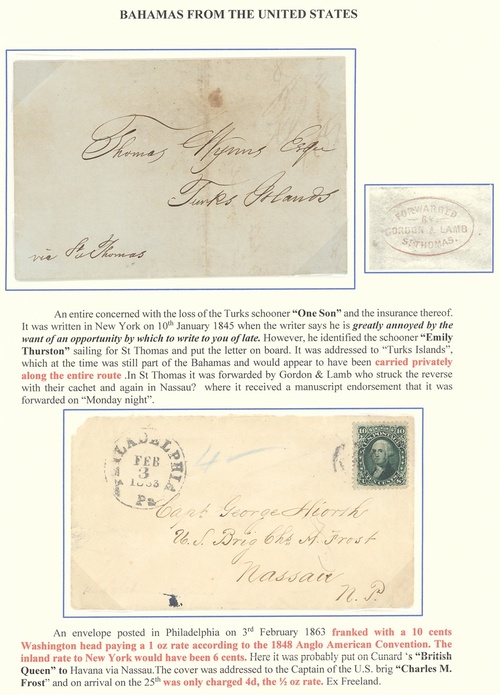 BAHAMAS FROM THE UNITED STATES
Thomas Wynns Esqr
Turks Islands
via St Thomas
FORWARDED
BY
GORDON & LAMB
ST THOMAS.
An entire concerned with the loss of the Turks schooner “One Son” and the insurance thereof.
It was written in New York on 10th January 1845 when the writer says he is greatly annoyed by the
want of an opportunity by which to write to you of late. However, he identified the schooner “Emily
Thurston” sailing for St Thomas and put the letter on board. It was addressed to “Turks Islands”,
which at the time was still part of the Bahamas and would appear to have been carried privately
along the entire route .In St Thomas it was forwarded by Gordon & Lamb who struck the reverse
with their cachet and again in Nassau? where it received a manuscript endorsement that it was
forwarded on “Monday night”.
PHILADELPHIA
FEB
3
1863
Pa
4
Capt George Hiorth
U.S. Brig Chs M. Frost
Nassau
N.P.
An envelope posted in Philadelphia on 3rd February 1863 franked with a 10 cents
Washington head paying a 1 oz rate according to the 1848 Anglo American Convention. The
inland rate to New York would have been 6 cents. Here it was probably put on Cunard ‘s “British
Queen” to Havana via Nassau.The cover was addressed to the Captain of the U.S. brig “Charles M.
Frost” and on arrival on the 25th was only charged 4d, the ½ oz rate. Ex Freeland.